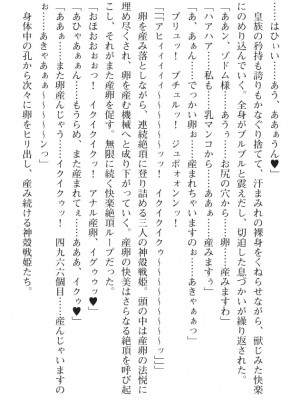 ……はひぃぃ、あう、ああぁうん♥」
皇族の矜持も誇りもかなぐり捨てて、汗まみれの裸身をくねらせながら、獣じみた快楽
にのめり込んでいく。全身がブルブルと震えだし、切迫した息づかいが繰り返された。
「ああン、ゾドム様ぁ、あうう、お尻の穴から……卵……産みますわぁ」
「ハアハア……私も……乳マンコから……あああ……産みますぅ」
「あ、あああ、でっかい卵ぉ……産まれちゃいますのぉ……あきゃぁぁっ」
ブリュッ！ プチュルッ！ ジュボォォンッ！
「「「アヒィィィィ～～～～～～～ッ！ イクイクイクゥ～～～～～～～～ッ」」」
卵を産み落としながら、連続絶頂に登り詰める三人の神殻戦姫。頭の中は産卵の法悦に
埋め尽くされ、卵を産む機械へと成り下がっていく。産卵の快美はさらなる絶頂を呼び起
こし、それがまた産卵を促す。無限に続く快楽絶頂ループだった。
「おほおおぉぉっ！ イクイクイクッ！ アナル産卵、イグゥゥッ♥」
「あひゃぁぁぁん……もううらめ、また産まれてぇ……あああ、イクゥ♥」
「あああぁ……また産んじゃう……イクイクゥッ！ 四九六六個目……産んじゃいますの
ぉ……あきゃぁぁぁ～～～～～ンっ」
身体中の孔から次々に卵をヒリ出し、産み続ける神殻戦姫たち。